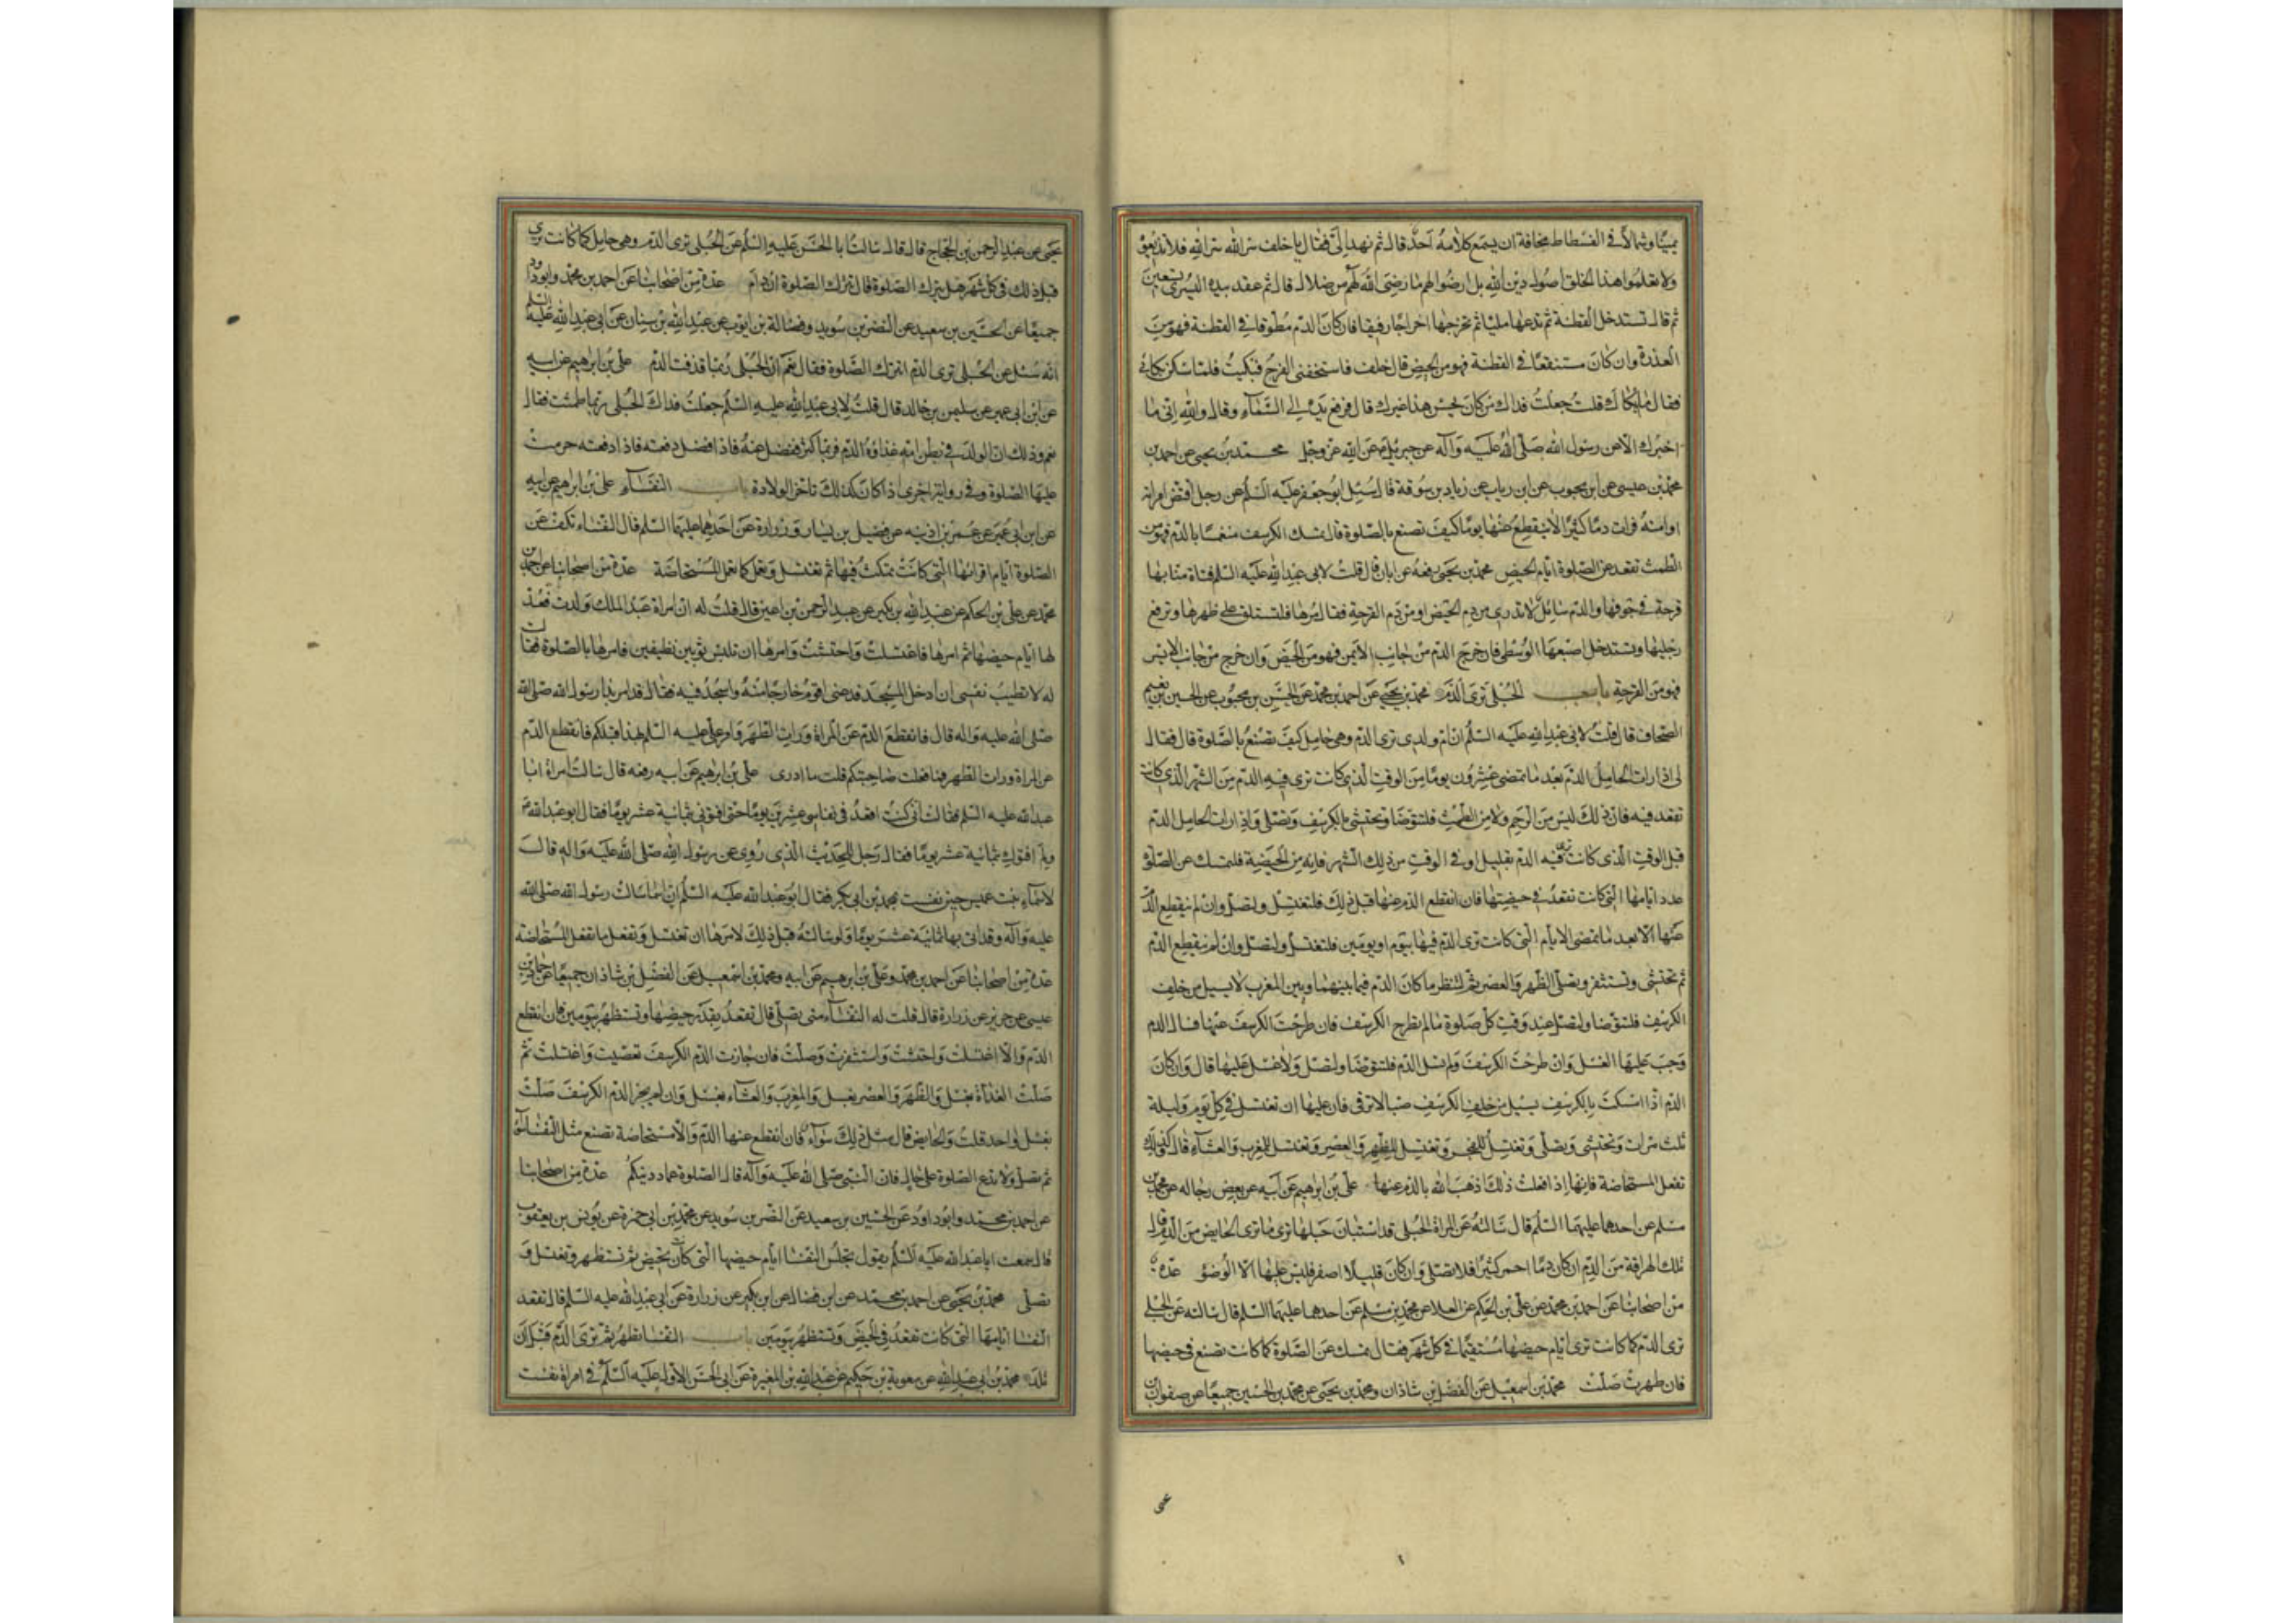 يمينًا وشمالًا في الفسطاط مخافة ان يسمع كلامه احد قال ثم نهد الىّ فقال يا خلف سر الله سر الله فلا تذيعوه
ولا تعلموا هذا الخلق اصول دين الله بل ارضوا لهم ما رضى الله لهم من ضلال قال ثم عقد بيده اليسرى تسعين
ثم قال تستدخل القطنة ثم تدعها مليّا ثم تخرجها اخراجًا رفيقا فان كان الدّم مطوقا في القطنة فهو من
العذرة وان كان مستنقعًا في القطنة فهو من الحيض قال خلف فاستخفنى الفرح فبكيت فلمّا سكن بكائى
فقال ما ابكاك قلت جعلت فداك من كان يحسن هذا غيرك قال فرفع يده الى السّمآء وقال والله انّى ما
اخبرك الّا عن رسول الله صلّى الله عليه وآله عن جبرئيل عن الله عزّ وجل محمّد بن يحيى عن احمد بن
محمّد بن عيسى عن ابن محبوب عن ابن رياب عن زياد بن سوقة قال سئل ابو جعفر عليه السّلم عن رجل افتض امراته
او امته فرات دمًا كثيرًا لا ينقطع عنها يومًا كيف تصنع بالصّلوة قال تمسك الكرسف
الطمث تقعد عن الصّلوة ايّام الحيض محمّد بن يحيى رفعه عن ابان قال قلت لابى عبد الله عليه السّلم فتاة منّا بها
قرحة في جوفها والدّم سائل لا تدرى من دم الحيض او من دم القرحة فقال مرها فلتستلق على ظهرها وترفع
رجليها وتستدخل اصبعها الوسطى فان خرج الدّم من جانب الايمن فهو من الحيض وان خرج من جانب الايسر
فهو من القرحة باب الحبلى ترى الدّم محمّد بن يحيى عن احمد بن محمّد عن الحسن بن محبوب عن الحسين بن نعيم
الصحّاف قال قلت لابى عبد الله عليه السّلم ان ام ولدى ترى الدّم وهى حامل كيف تصنع بالصّلوة قال فقال
لى اذا رات الحامل الدّم بعد ما تمضى عشرون يومًا من الوقت الّذى كانت ترى فيه الدّم من الشهر الّذى كانت
تقعد فيه فان ذلك ليس من الرّحم ولا من الطّمث فلتتوضّا وتحتشى بالكرسف وتصلّى واذا رات الحامل الدّم
قبل الوقت الّذى كانت ترى فيه الدّم بقليل او في الوقت من ذلك الشّهر فانه من الحيضة فلتمسك عن الصّلوة
عدد ايّامها الّتى كانت تقعد في حيضتها فان انقطع الدّم عنها قبل ذلك فلتغتسل ولتصلّ وان لم ينقطع الدّم
عنها الّا بعد ما تمضى الايام الّتى كانت ترى الدّم فيها بيوم او يومين فلتغتسل ولتصلّ وان لم ينقطع الدّم
ثم تحتشى وتستثفر وتصلّى الظّهر والعصر ثم لتنظر ما كان الدّم فيما بينهما وبين المغرب لا يسيل من خلف
الكرسف فلتتوضا ولتصلّ عند وقت كلّ صلوة ما لم تطرح الكرسف فان طرحت الكرسف عنها فسال الدم
وجب عليها الغسل وان طرحت الكرسف ولم يسل الدّم فلتتوضّا ولتصلّ ولا غسل عليها قال وان كان
الدّم اذا امسكت بالكرسف يسيل من خلف الكرسف صبّا لا يرقى فان عليها ان تغتسل في كل يوم وليلة
ثلث مرات وتحتشى وتصلّى وتغتسل للفجر وتغتسل للظّهر والعصر وتغتسل للمغرب والعشآء قال كذلك
تفعل المستحاضة فانّها اذا فعلت ذلك اذهب الله بالدّم عنها علىّ بن ابرهيم عن ابيه عن بعض رجاله عن محمّد بن
مسلم عن احدهما عليهما السّلم قال سالته عن المراة الحبلى قد استبان حبلها ترى ما ترى الحايض من الدّم قال
تلك الهراقة من الدّم ان كان دمًا احمر كثيرًا فلا تصلّى وان كان قليلًا اصفر فليس عليها الّا الوضوء عدّة
من اصحابنا عن احمد بن محمّد عن علىّ بن الحكم عن العلا عن محمّد بن مسلم عن احدهما عليهما السّلم قال سالته عن الحبلى
ترى الدّم كما كانت ترى ايّام حيضها مستقيمًا في كلّ شهر فقال تمسك عن الصّلوة كما كانت تصنع في حيضها
فان طهرت صلّت محمّد بن اسمعيل عن الفضل بن شاذان ومحمّد بن يحيى عن محمّد بن الحسين جميعًا عن صفوان بن
يحيى عن عبد الرّحمن بن الحجّاج قال قال سالت ابا الحسن عليه السّلم عن الحبلى ترى الدّم وهى حامل كما كانت ترى
قبل ذلك في كلّ شهر هل تترك الصّلوة قال تترك الصّلوة ان دام عدّة من اصحابنا عن احمد بن محمّد وابو داود
جميعًا عن الحسين بن سعيد عن النضر بن سويد وفضالة بن ايّوب عن عبد الله بن سنان عن ابى عبد الله عليه السّلم
انّه سئل عن الحبلى ترى الدّم اتترك الصّلوة فقال نعم ان الحبلى ربّما قذفت الدّم علىّ بن ابرهيم عن ابيه
عن ابن ابى عمير عن سليمن بن خالد قال قلت لابى عبد الله عليه السّلم جعلت فداك الحبلى ربّما طمثت فقال
نعم وذلك ان الولد في بطن امّه غذاؤه الدّم فربّما كثر ففضل عنه فاذا فضل دفعته فاذا دفعته حرمت
عليها الصّلوة وفي رواية اخرى اذا كان كذلك تاخّر الولادة باب النفسآء علىّ بن ابرهيم عن ابيه
عن ابن ابى عمير عن عمر بن اذينه عن فضيل بن يسار وزرارة عن احدهما عليهما السّلم قال النفساء تكف عن
الصّلوة ايّام اقرائها الّتى كانت تمكث فيها ثم تغتسل وتعمل كما تعمل المستحاضة عدّة من اصحابنا عن احمد بن
محمّد عن علىّ بن الحكم عن عبد الله بن بكير عن عبد الرّحمن بن اعين قال قلت له ان امراة عبد الملك ولدت فعدّ
لها ايّام حيضها ثم امرها فاغتسلت واحتشت وامرها ان تلبس ثوبين نظيفين فامرها بالصّلوة فقالت
له لا تطيب نفسى ان ادخل المسجد فدعنى اقوم خارجًا منه واسجد فيه فقال قد امر بذا رسول الله صلّى الله
صلّى الله عليه وآله قال فانقطع الدّم عن المراة ورات الطّهر وامر علىّ عليه السّلم بهذا قبلكم فانقطع الدّم
عن المراة ورات الطهر فما فعلت صاحبتكم قلت ما ادرى علىّ بن ابرهيم عن ابيه رفعه قال سالت امراة ابا
عبد الله عليه السّلم فقالت انّى كنت اقعد في نفاسى عشرين يومًا حتّى افتونى بثمانية عشر يومًا فقال ابو عبد الله
ولم افتوك بثمانية عشر يومًا فقال رجل للحديث الّذى روى عن رسول الله صلّى الله عليه وآله قال
لاسمآء بنت عميس حين نفست بمحمّد بن ابى بكر فقال ابو عبد الله عليه السّلم ان اسما سالت رسول الله صلّى الله
عليه وآله وقد اتى بها ثمانية عشر يومًا ولو سالته قبل ذلك لامرها ان تغتسل وتفعل ما تفعل المستحاضة
عدّة من اصحابنا عن احمد بن محمّد وعلىّ بن ابرهيم عن ابيه ومحمّد بن اسمعيل عن الفضل بن شاذان جميعًا عن حماد بن
عيسى عن حريز عن زرارة قال قلت له النفسآء متى تصلّى قال تقعد بقدر حيضها وتستظهر بيومين فان انقطع
الدّم والّا اغتسلت واحتشت واستثفرت وصلّت فان جازت الدّم الكرسف تعصّبت واغتسلت ثم
صلّت الغداة بغسل والظّهر والعصر بغسل والمغرب والعشآء بغسل وان لم يجز الدّم الكرسف صلّت
بغسل واحد قلت والحايض قال مثل ذلك سوآء فان انقطع عنها الدّم والّا فهى مستحاضة تصنع مثل النّفسآء
ثم تصلّى ولا تدع الصّلوة على حال فان النّبىّ صلّى الله عليه وآله قال الصّلوة عماد دينكم عدّة من اصحابنا
عن احمد بن محمّد وابو داود عن الحسين بن سعيد عن النّضر بن سويد عن محمّد بن ابى حمزة عن يونس بن يعقوب
قال سمعت ابا عبد الله عليه السّلم يقول تجلس النفسا ايّام حيضها الّتى كانت تحيض ثم تستظهر وتغتسل و
تصلّى محمّد بن يحيى عن احمد بن محمّد عن ابن فضال عن ابن بكير عن زرارة عن ابى عبد الله عليه السّلم قال تقعد
النفسا ايّامها الّتى كانت تقعد في الحيض وتستظهر بيومين باب النفسا تطهر ثم ترى الدّم قبل ان
تلد محمّد بن ابى عبد الله عن معوية بن حكيم عن عبد الله بن المغيرة عن ابى الحسن الاوّل عليه السّلم في امراة نفست